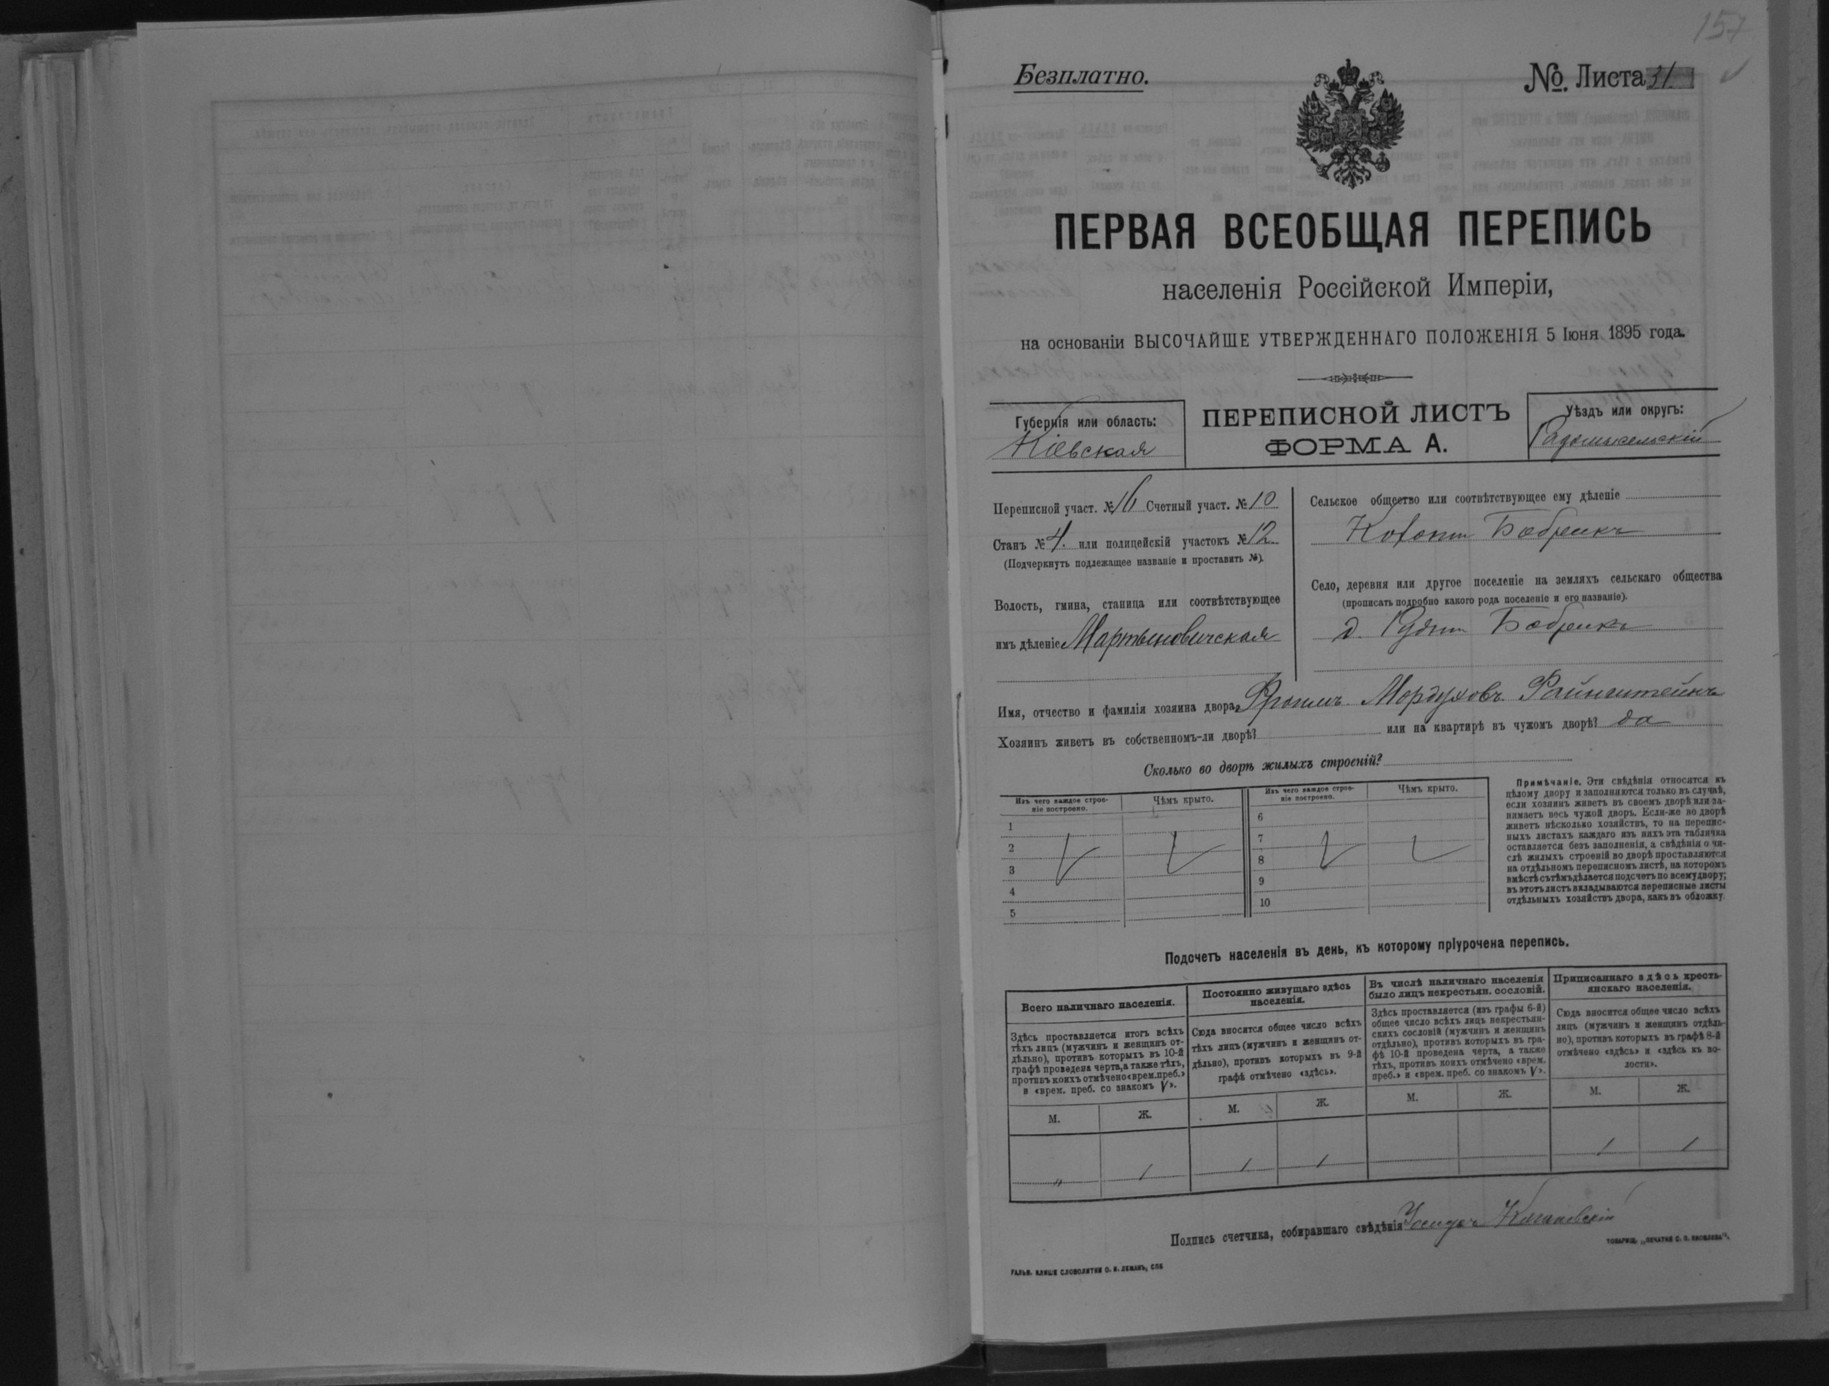 157
Безплатно.
№. Листа 31.
ПЕРВАЯ ВСЕОБЩАЯ ПЕРЕПИСЬ
населенія Россійской Имперіи,
на основаніи ВЫСОЧАЙШЕ УТВЕРЖДЕННАГО ПОЛОЖЕНІЯ 5 Іюня 1895 года.
Губернія или область:
Кіевская
ПЕРЕПИСНОЙ ЛИСТЪ
ФОРМА А.
Уѣздъ или округъ:
Радомысельскій
Переписной участ. № 16 Счетный участ. № 10
Станъ № 4. или полицейскій участокъ № 12.
(Подчеркнуть подлежащее названіе и проставить №).
Волость, гмина, станица или соотвѣтствующее
имъ дѣленіе Мартыновичская
Сельское общество или соотвѣтствующее ему дѣленіе
Село, деревня или другое поселеніе на земляхъ сельскаго общества
(прописать подробно какого рода поселеніе и его названіе).
д.
Имя, отчество и фамилія хозяина двора, Фроимъ Мордуховъ Файнштейнъ
Хозяинъ живетъ въ собственномъ-ли дворѣ? или на квартирѣ въ чужомъ дворѣ? да
Сколько во дворѣ жилыхъ строеній?
Изъ чего каждое строе-
ніе построено.
Чѣмъ крыто.
1
2
3
4
5
Изъ чего каждое строе-
ніе построено.
Чѣмъ крыто.
6
7
8
9
10
Примѣчаніе. Эти свѣдѣнія относятся къ
цѣлому двору и заполняются только въ случаѣ,
если хозяинъ живетъ въ своемъ дворѣ или за-
нимаетъ весь чужой дворъ. Если-же во дворѣ
живетъ нѣсколько хозяйствъ, то на перепис-
ныхъ листахъ каждаго изъ нихъ эта табличка
оставляется безъ заполненія, а свѣдѣнія о чи-
слѣ жилыхъ строеній во дворѣ проставляются
на отдѣльномъ переписномъ листѣ, на которомъ
вмѣстѣ съ тѣмъ дѣлается подсчетъ по всему двору;
въ этотъ листъ вкладываются переписные листы
отдѣльныхъ хозяйствъ двора, какъ въ обложку.
Подсчетъ населенія въ день, къ которому пріурочена перепись.
Всего наличнаго населенія.
Здѣсь проставляется итогъ всѣхъ
тѣхъ лицъ (мужчинъ и женщинъ от-
дѣльно), противъ которыхъ въ 10-й
графѣ проведена черта, а также тѣхъ,
противъ коихъ отмѣчено «врем. преб.»
и «врем. преб. со знакомъ V».
М. Ж.
„ 1
Постоянно живущаго здѣсь
населенія.
Сюда вносится общее число всѣхъ
тѣхъ лицъ (мужчинъ и женщинъ от-
дѣльно), противъ которыхъ въ 9-й
графѣ отмѣчено «здѣсь».
М. Ж.
1 1
Въ числѣ наличнаго населенія
было лицъ некрестьян. сословій.
Здѣсь проставляется (изъ графы 6-й)
общее число всѣхъ лицъ некрестьян-
скихъ сословій (мужчинъ и женщинъ
отдѣльно), противъ которыхъ въ гра-
фѣ 10-й проведена черта, а также
тѣхъ, противъ коихъ отмѣчено «врем.
преб.» и «врем. преб. со знакомъ V».
М. Ж.
Приписаннаго здѣсь кресть-
янскаго населенія.
Сюда вносится общее число всѣхъ
лицъ (мужчинъ и женщинъ отдѣль-
но), противъ которыхъ въ графѣ 8-й
отмѣчено «здѣсь» и «здѣсь въ во-
лости».
М. Ж.
1 1
Подпись счетчика, собиравшаго свѣдѣнія
ГАЛЬВ. КЛИШЕ СЛОВОЛИТНИ О. И. ЛЕМАНЪ, СПБ
ТОВАРИЩ. „ПЕЧАТНЯ С. П. ЯКОВЛЕВА".